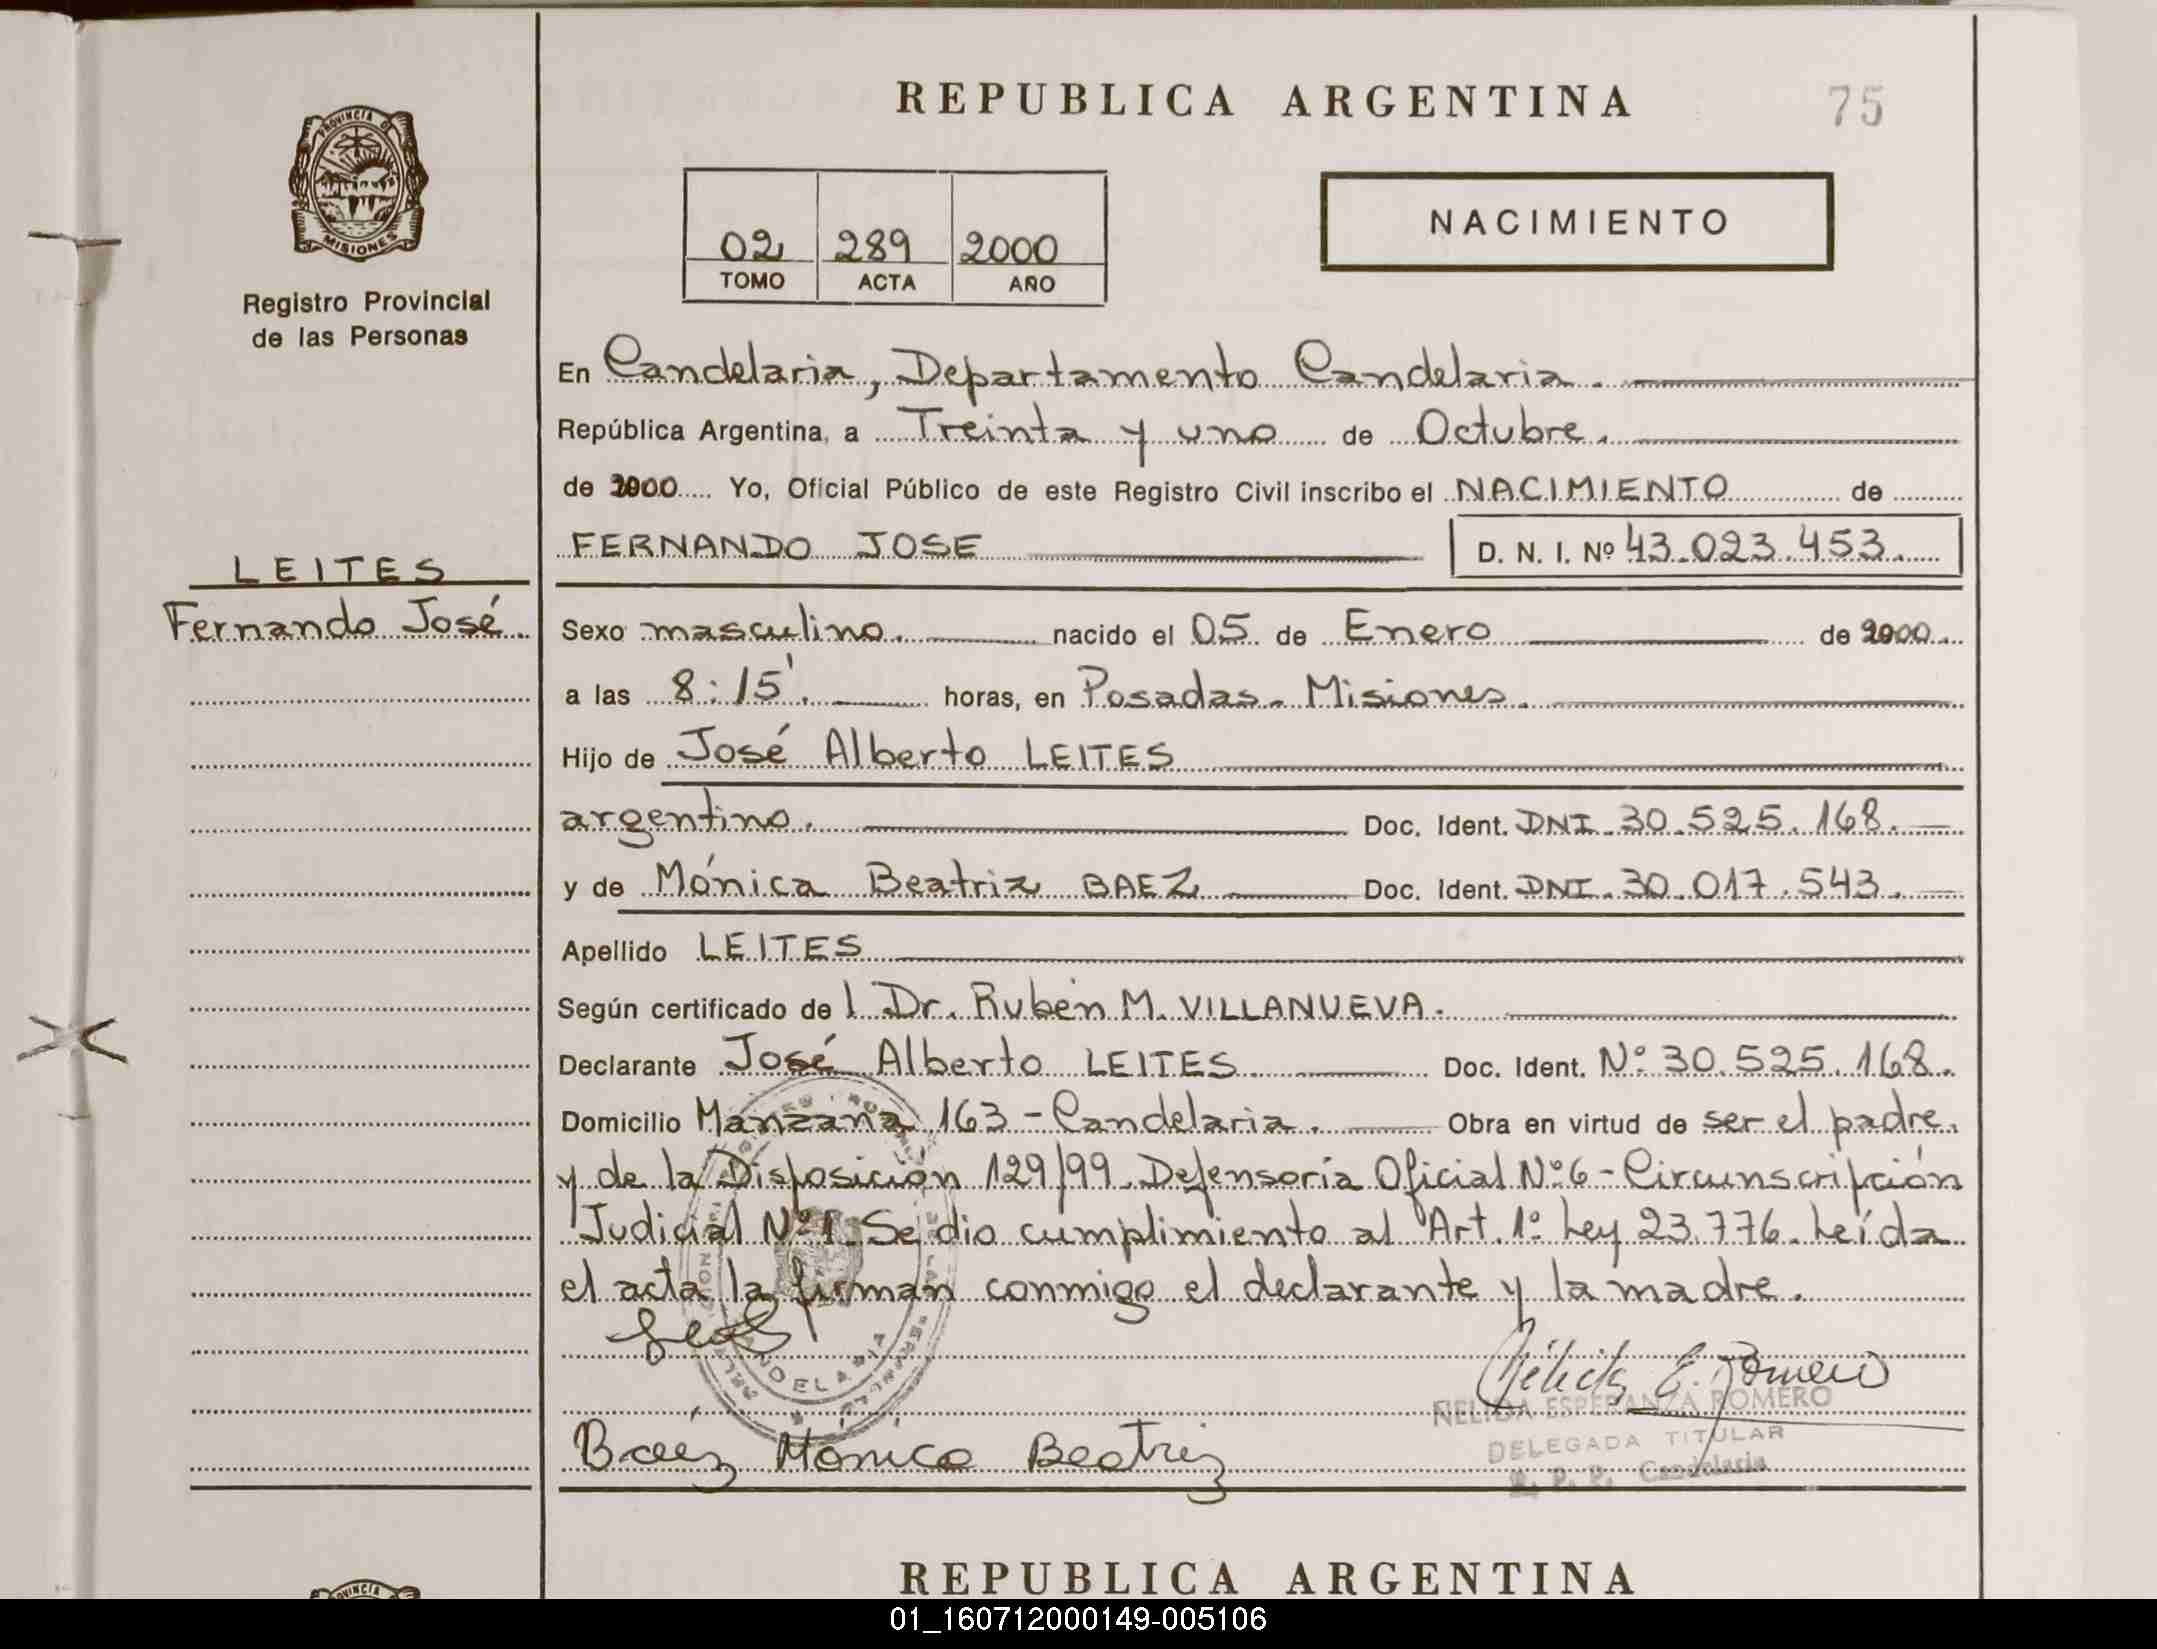 REPUBLICA ARGENTINA
75
PROVINCIA DE
MISIONES
Registro Provincial
de las Personas
02 289 2000
TOMO ACTA AÑO
NACIMIENTO
En Candelaria, Departamento Candelaria.
República Argentina, a Treinta y uno de Octubre.
de 2000 Yo, Oficial Público de este Registro Civil inscribo el NACIMIENTO de
FERNANDO JOSE D. N. I. Nº 43.023.453.
LEITES
Fernando José.
Sexo masculino. nacido el 05 de Enero de 2000
a las 8:15'. horas, en Posadas - Misiones.
Hijo de José Alberto LEITES
argentino. Doc. Ident. DNI. 30.525.168.
y de Mónica Beatriz BAEZ Doc. Ident. DNI. 30.017.543.
Apellido LEITES
Según certificado de l Dr. Rubén M. VILLANUEVA.
Declarante José Alberto LEITES Doc. Ident. Nº 30.525.168.
Domicilio Manzana 163 - Candelaria. Obra en virtud de ser el padre
y de la Disposición 129/99. Defensoría Oficial Nº 6 - Circunscripción
Judicial Nº 1. Se dio cumplimiento al Art. 1º Ley 23.776. Leída
el acta la firman conmigo el declarante y la madre.
CANDELARIA
Nélida E. Romero
NELIDA ESPERANZA ROMERO
DELEGADA TITULAR
R. P. P. Candelaria
Baéz Mónica Beatriz
REPUBLICA ARGENTINA
PROVINCIA
01_160712000149-005106